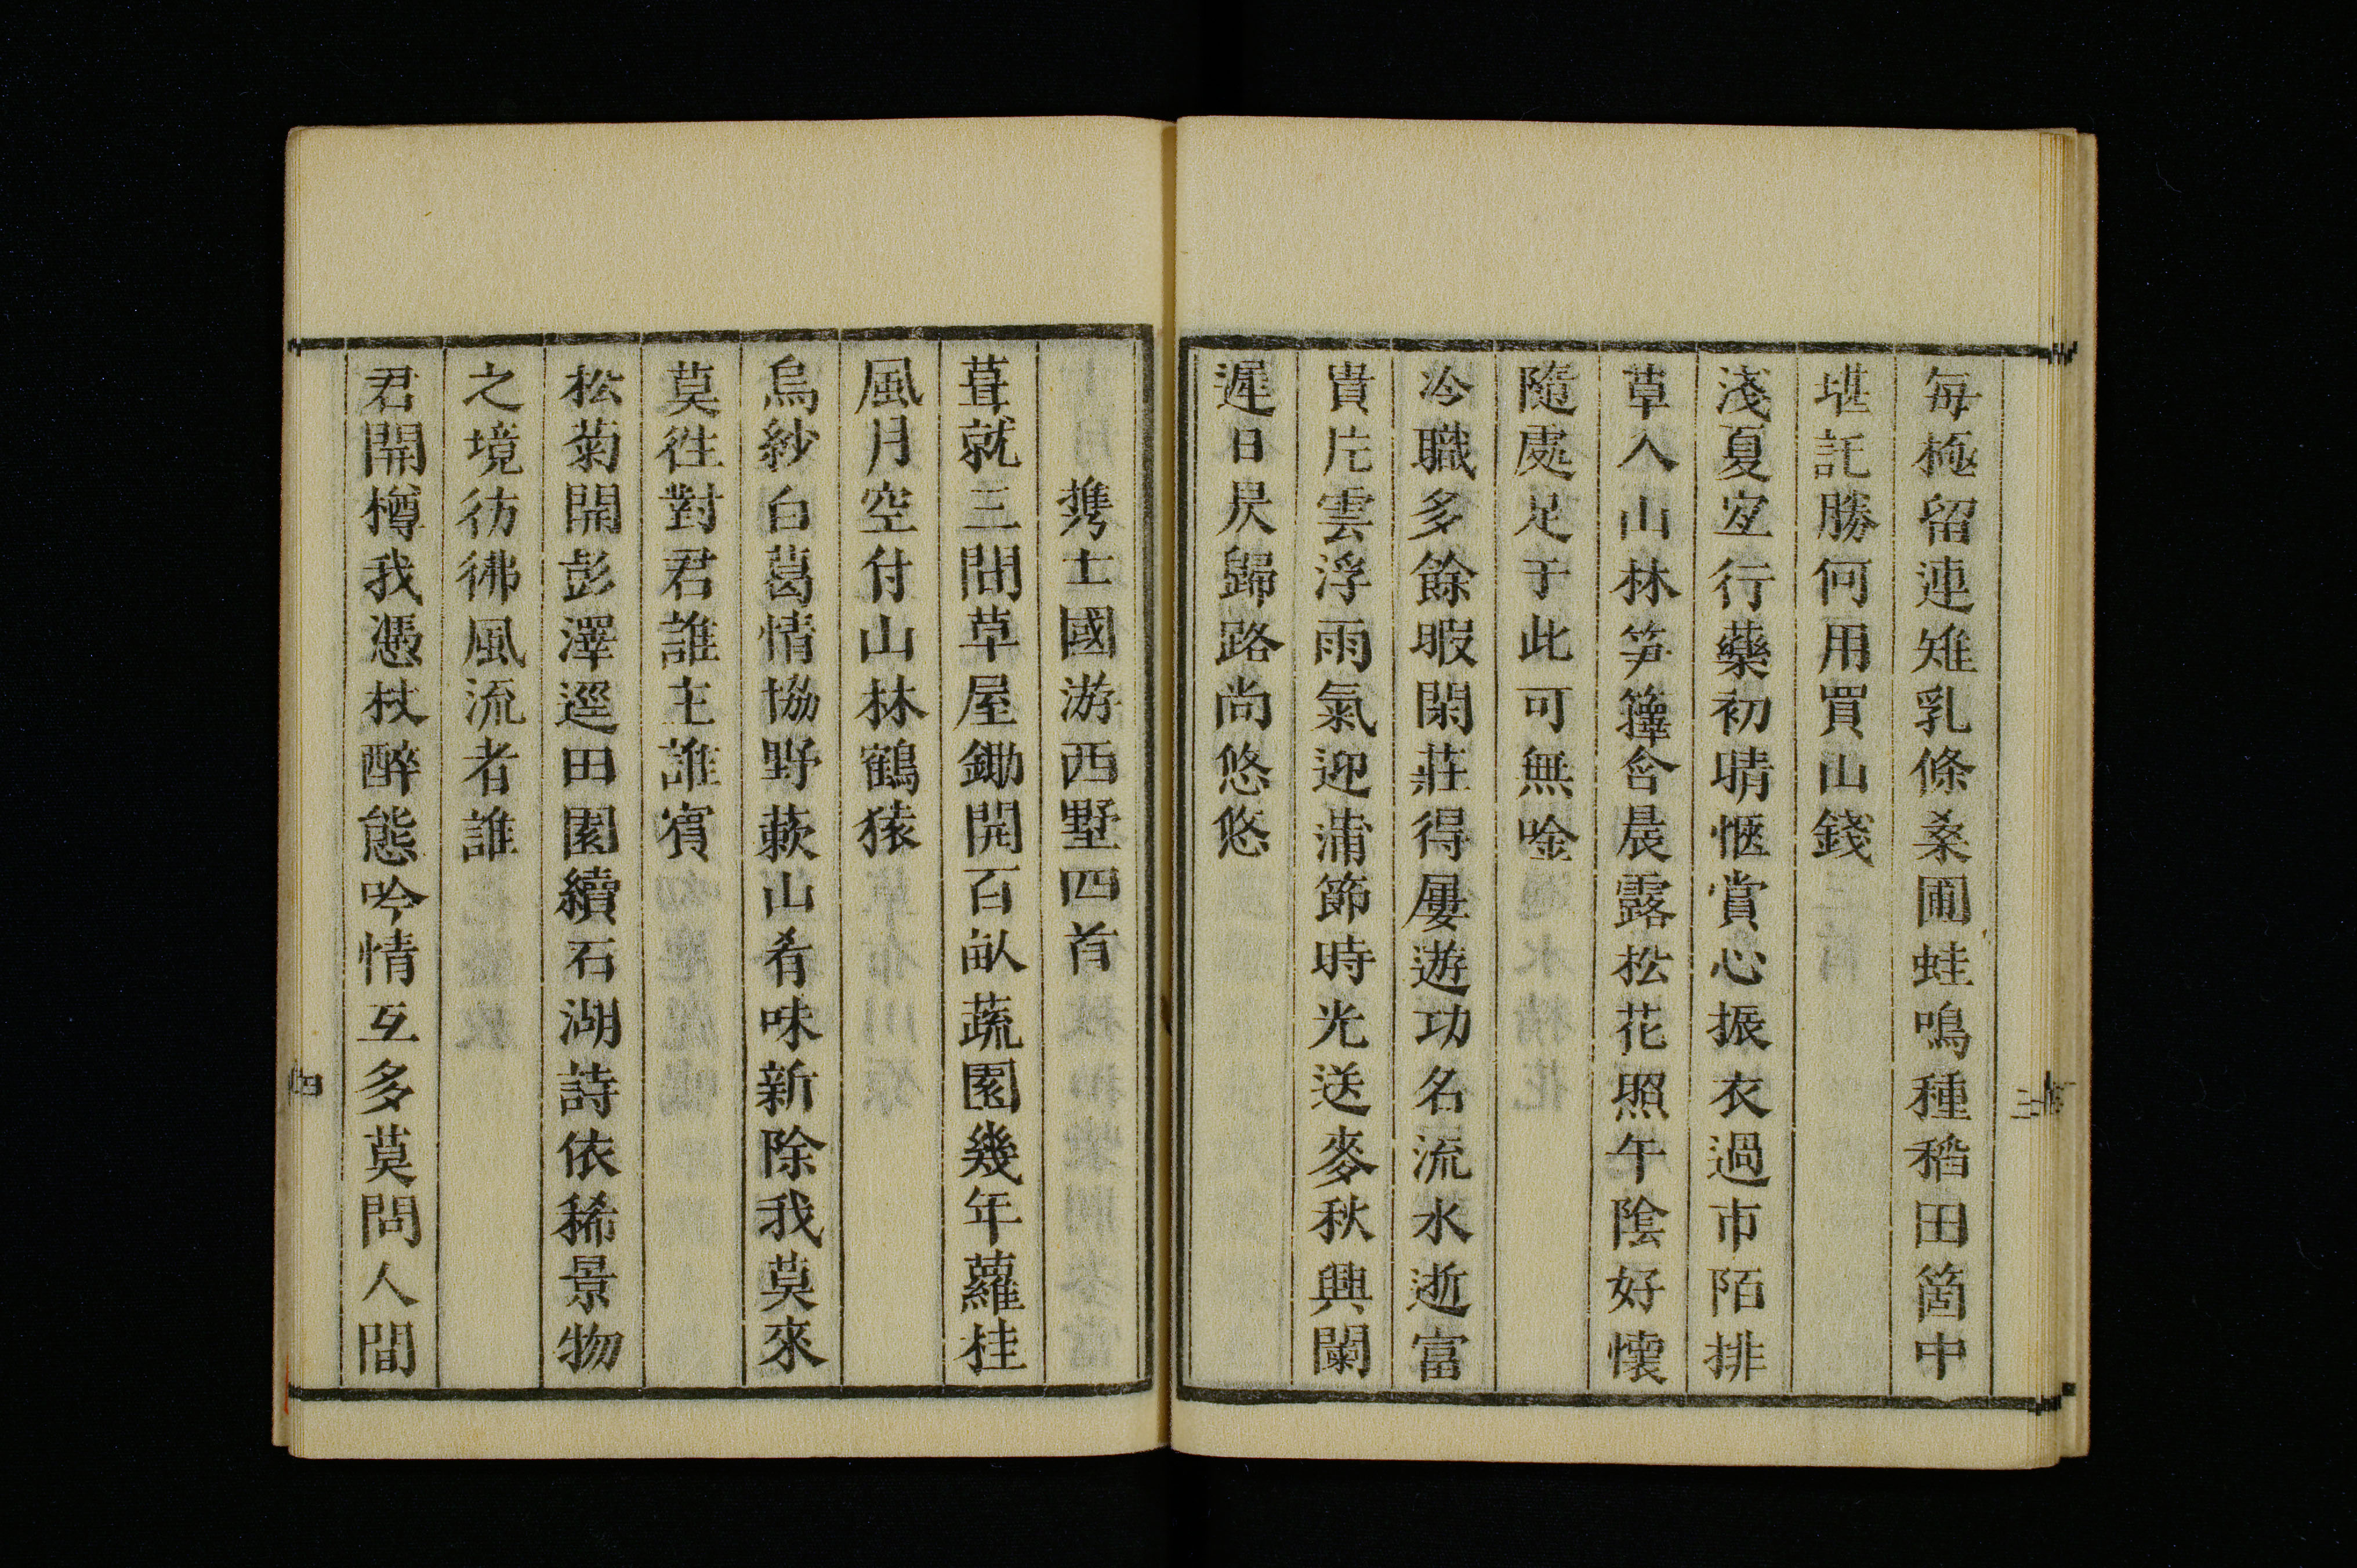 每極留連雉乳條桑圃蛙鳴種稻田箇中
堪託勝何用買山錢
淺夏宜行藥初晴愜賞心振衣過市陌排
草入山林笋籜含晨露松花照午陰好懷
隨處足于此可無唫
冷職多餘暇閑莊得屢遊功名流水逝富
貴片雲浮雨氣迎蒲節時光送麥秋興闌
遲日昃歸路尚悠悠
三
攜士國游西墅四首
葺就三間草屋鋤開百畝蔬園幾年蘿桂
風月空付山林鶴猿
烏紗白葛情協野蔌山肴味新除我莫來
莫往對君誰主誰賓
松菊開彭澤逕田園續石湖詩依稀景物
之境彷彿風流者誰
君開樽我憑杖醉態吟情互多莫問人間
四